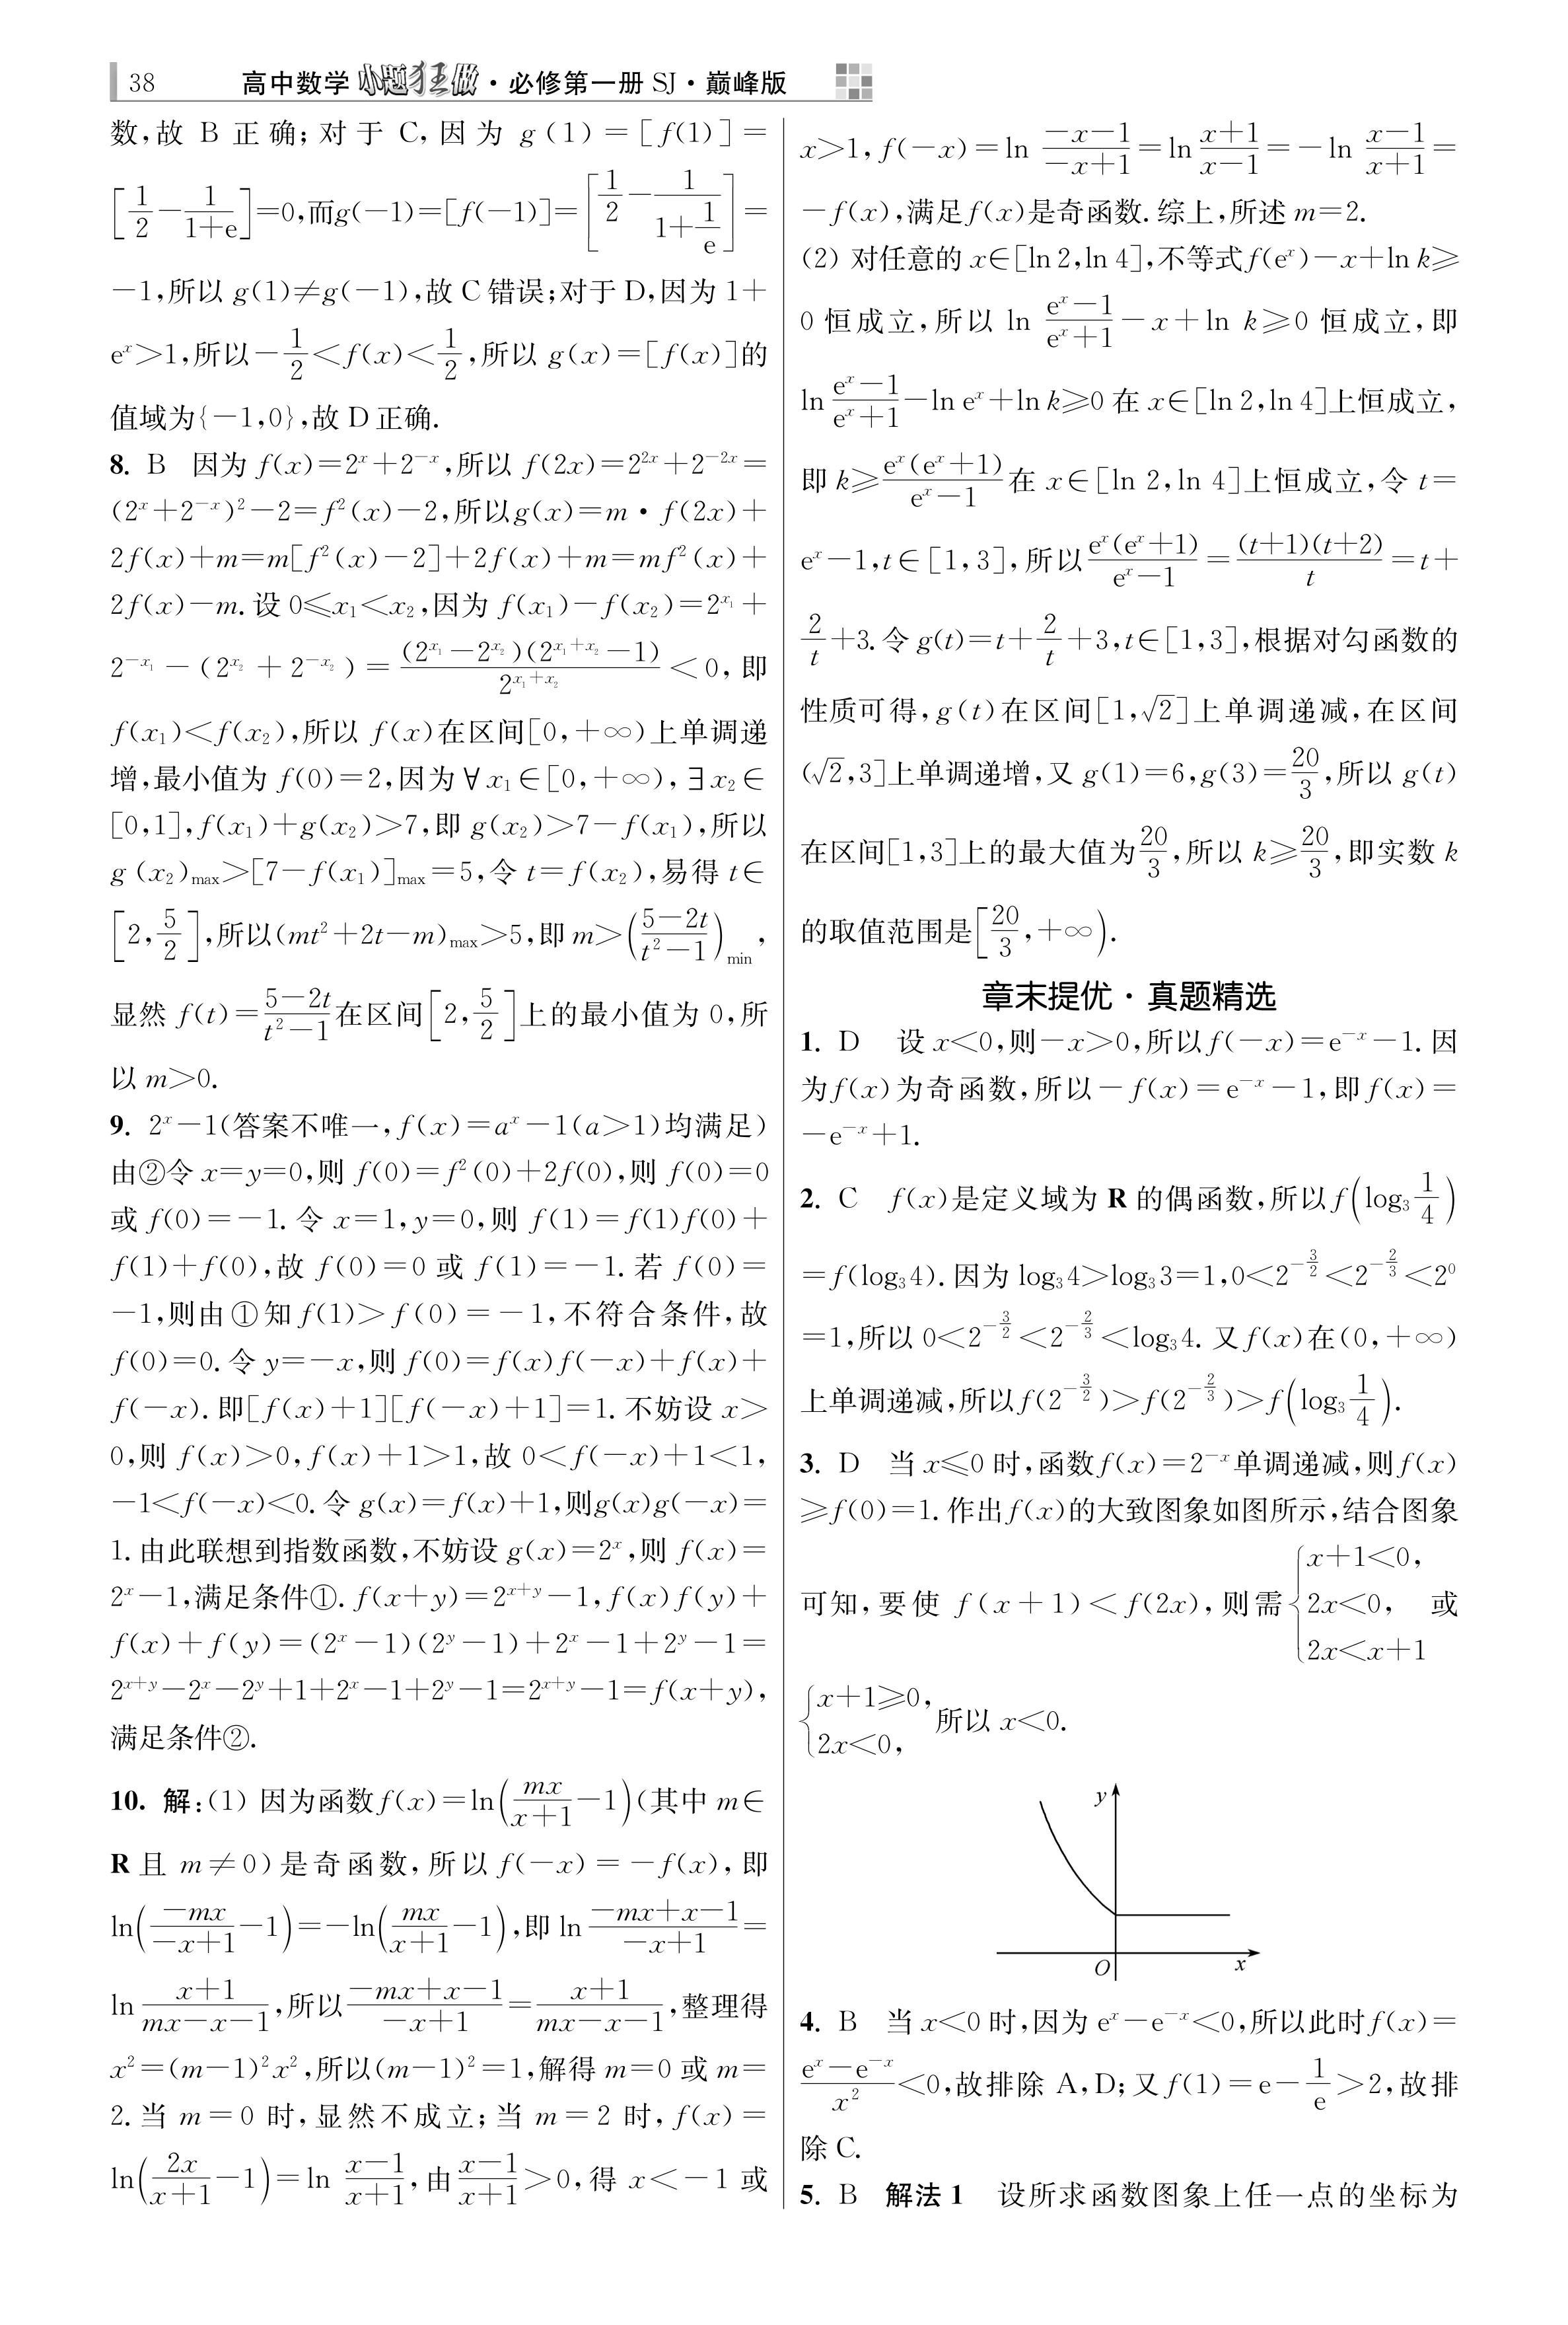 38 高中数学小题狂做·必修第一册 SJ·巅峰版
数,故 B 正确;对于 C,因为 g(1)=[f(1)]=
[1/2-1/(1+e)]=0,而g(-1)=[f(-1)]=[1/2-1/(1+1/e)]=
-1,所以 g(1)≠g(-1),故 C 错误;对于 D,因为 1+
eˣ>1,所以-1/2<f(x)<1/2,所以 g(x)=[f(x)]的
值域为{-1,0},故 D 正确.
8. B 因为 f(x)=2ˣ+2⁻ˣ,所以 f(2x)=2²ˣ+2⁻²ˣ=
(2ˣ+2⁻ˣ)²-2=f²(x)-2,所以g(x)=m·f(2x)+
2f(x)+m=m[f²(x)-2]+2f(x)+m=mf²(x)+
2f(x)-m.设 0≤x₁<x₂,因为 f(x₁)-f(x₂)=2^(x₁)+
2^(-x₁)-(2^(x₂)+2^(-x₂))=(2^(x₁)-2^(x₂))(2^(x₁+x₂)-1)/2^(x₁+x₂)<0,即
f(x₁)<f(x₂),所以 f(x)在区间[0,+∞)上单调递
增,最小值为 f(0)=2,因为∀x₁∈[0,+∞),∃x₂∈
[0,1],f(x₁)+g(x₂)>7,即 g(x₂)>7-f(x₁),所以
g(x₂)max>[7-f(x₁)]max=5,令 t=f(x₂),易得 t∈
[2,5/2],所以(mt²+2t-m)max>5,即 m>((5-2t)/(t²-1))min,
显然 f(t)=(5-2t)/(t²-1)在区间[2,5/2]上的最小值为 0,所
以 m>0.
9. 2ˣ-1(答案不唯一,f(x)=aˣ-1(a>1)均满足)
由②令 x=y=0,则 f(0)=f²(0)+2f(0),则 f(0)=0
或 f(0)=-1.令 x=1,y=0,则 f(1)=f(1)f(0)+
f(1)+f(0),故 f(0)=0 或 f(1)=-1.若 f(0)=
-1,则由①知 f(1)>f(0)=-1,不符合条件,故
f(0)=0.令 y=-x,则 f(0)=f(x)f(-x)+f(x)+
f(-x).即[f(x)+1][f(-x)+1]=1.不妨设 x>
0,则 f(x)>0,f(x)+1>1,故 0<f(-x)+1<1,
-1<f(-x)<0.令 g(x)=f(x)+1,则g(x)g(-x)=
1.由此联想到指数函数,不妨设 g(x)=2ˣ,则 f(x)=
2ˣ-1,满足条件①.f(x+y)=2ˣ⁺ʸ-1,f(x)f(y)+
f(x)+f(y)=(2ˣ-1)(2ʸ-1)+2ˣ-1+2ʸ-1=
2ˣ⁺ʸ-2ˣ-2ʸ+1+2ˣ-1+2ʸ-1=2ˣ⁺ʸ-1=f(x+y),
满足条件②.
10. 解:(1) 因为函数f(x)=ln(mx/(x+1)-1)(其中 m∈
R 且 m≠0)是奇函数,所以 f(-x)=-f(x),即
ln(-mx/(-x+1)-1)=-ln(mx/(x+1)-1),即 ln (-mx+x-1)/(-x+1)=
ln (x+1)/(mx-x-1),所以(-mx+x-1)/(-x+1)=(x+1)/(mx-x-1),整理得
x²=(m-1)²x²,所以(m-1)²=1,解得 m=0 或 m=
2.当 m=0 时,显然不成立;当 m=2 时,f(x)=
ln(2x/(x+1)-1)=ln (x-1)/(x+1),由(x-1)/(x+1)>0,得 x<-1 或
x>1,f(-x)=ln (-x-1)/(-x+1)=ln (x+1)/(x-1)=-ln (x-1)/(x+1)=
-f(x),满足f(x)是奇函数.综上,所述 m=2.
(2) 对任意的 x∈[ln 2,ln 4],不等式f(eˣ)-x+ln k≥
0 恒成立,所以 ln (eˣ-1)/(eˣ+1)-x+ln k≥0 恒成立,即
ln (eˣ-1)/(eˣ+1)-ln eˣ+ln k≥0 在 x∈[ln 2,ln 4]上恒成立,
即 k≥eˣ(eˣ+1)/(eˣ-1)在 x∈[ln 2,ln 4]上恒成立,令 t=
eˣ-1,t∈[1,3],所以eˣ(eˣ+1)/(eˣ-1)=(t+1)(t+2)/t=t+
2/t+3.令 g(t)=t+2/t+3,t∈[1,3],根据对勾函数的
性质可得,g(t)在区间[1,√2]上单调递减,在区间
(√2,3]上单调递增,又 g(1)=6,g(3)=20/3,所以 g(t)
在区间[1,3]上的最大值为20/3,所以 k≥20/3,即实数 k
的取值范围是[20/3,+∞).
章末提优·真题精选
1. D 设 x<0,则-x>0,所以f(-x)=e⁻ˣ-1.因
为f(x)为奇函数,所以-f(x)=e⁻ˣ-1,即f(x)=
-e⁻ˣ+1.
2. C f(x)是定义域为 R 的偶函数,所以f(log₃1/4)
=f(log₃4).因为 log₃4>log₃3=1,0<2^(-3/2)<2^(-2/3)<2⁰
=1,所以 0<2^(-3/2)<2^(-2/3)<log₃4.又f(x)在(0,+∞)
上单调递减,所以f(2^(-3/2))>f(2^(-2/3))>f(log₃1/4).
3. D 当 x≤0 时,函数f(x)=2⁻ˣ单调递减,则f(x)
≥f(0)=1.作出f(x)的大致图象如图所示,结合图象
可知,要使 f(x+1)<f(2x),则需{x+1<0,2x<0,2x<x+1 或
{x+1≥0,2x<0,所以 x<0.
y
O x
4. B 当 x<0 时,因为 eˣ-e⁻ˣ<0,所以此时f(x)=
(eˣ-e⁻ˣ)/x²<0,故排除 A,D;又f(1)=e-1/e>2,故排
除 C.
5. B 解法 1 设所求函数图象上任一点的坐标为